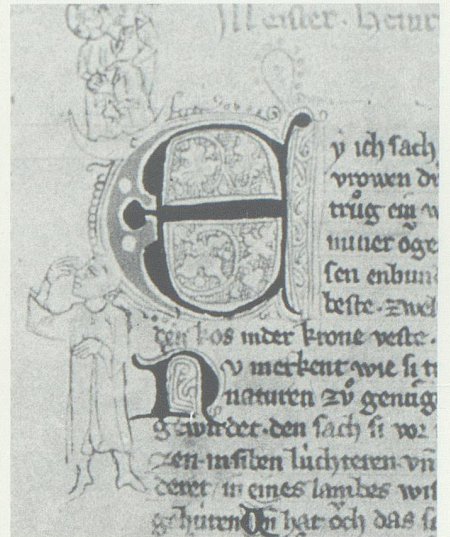 Meister · Heinr
Ey ich sach
vrowen de
trůg ein w
nimer oͮge
sen enbun
beste · zwel
den kos inder krone veste ·
Nv merkent wie si tr
naturen zů genůg
gewirdet · den sach si vor
zen · in siben lůchteren · vn̄
deret / in eines lambes wis
gehúren Vn̄ hat oͮch das si